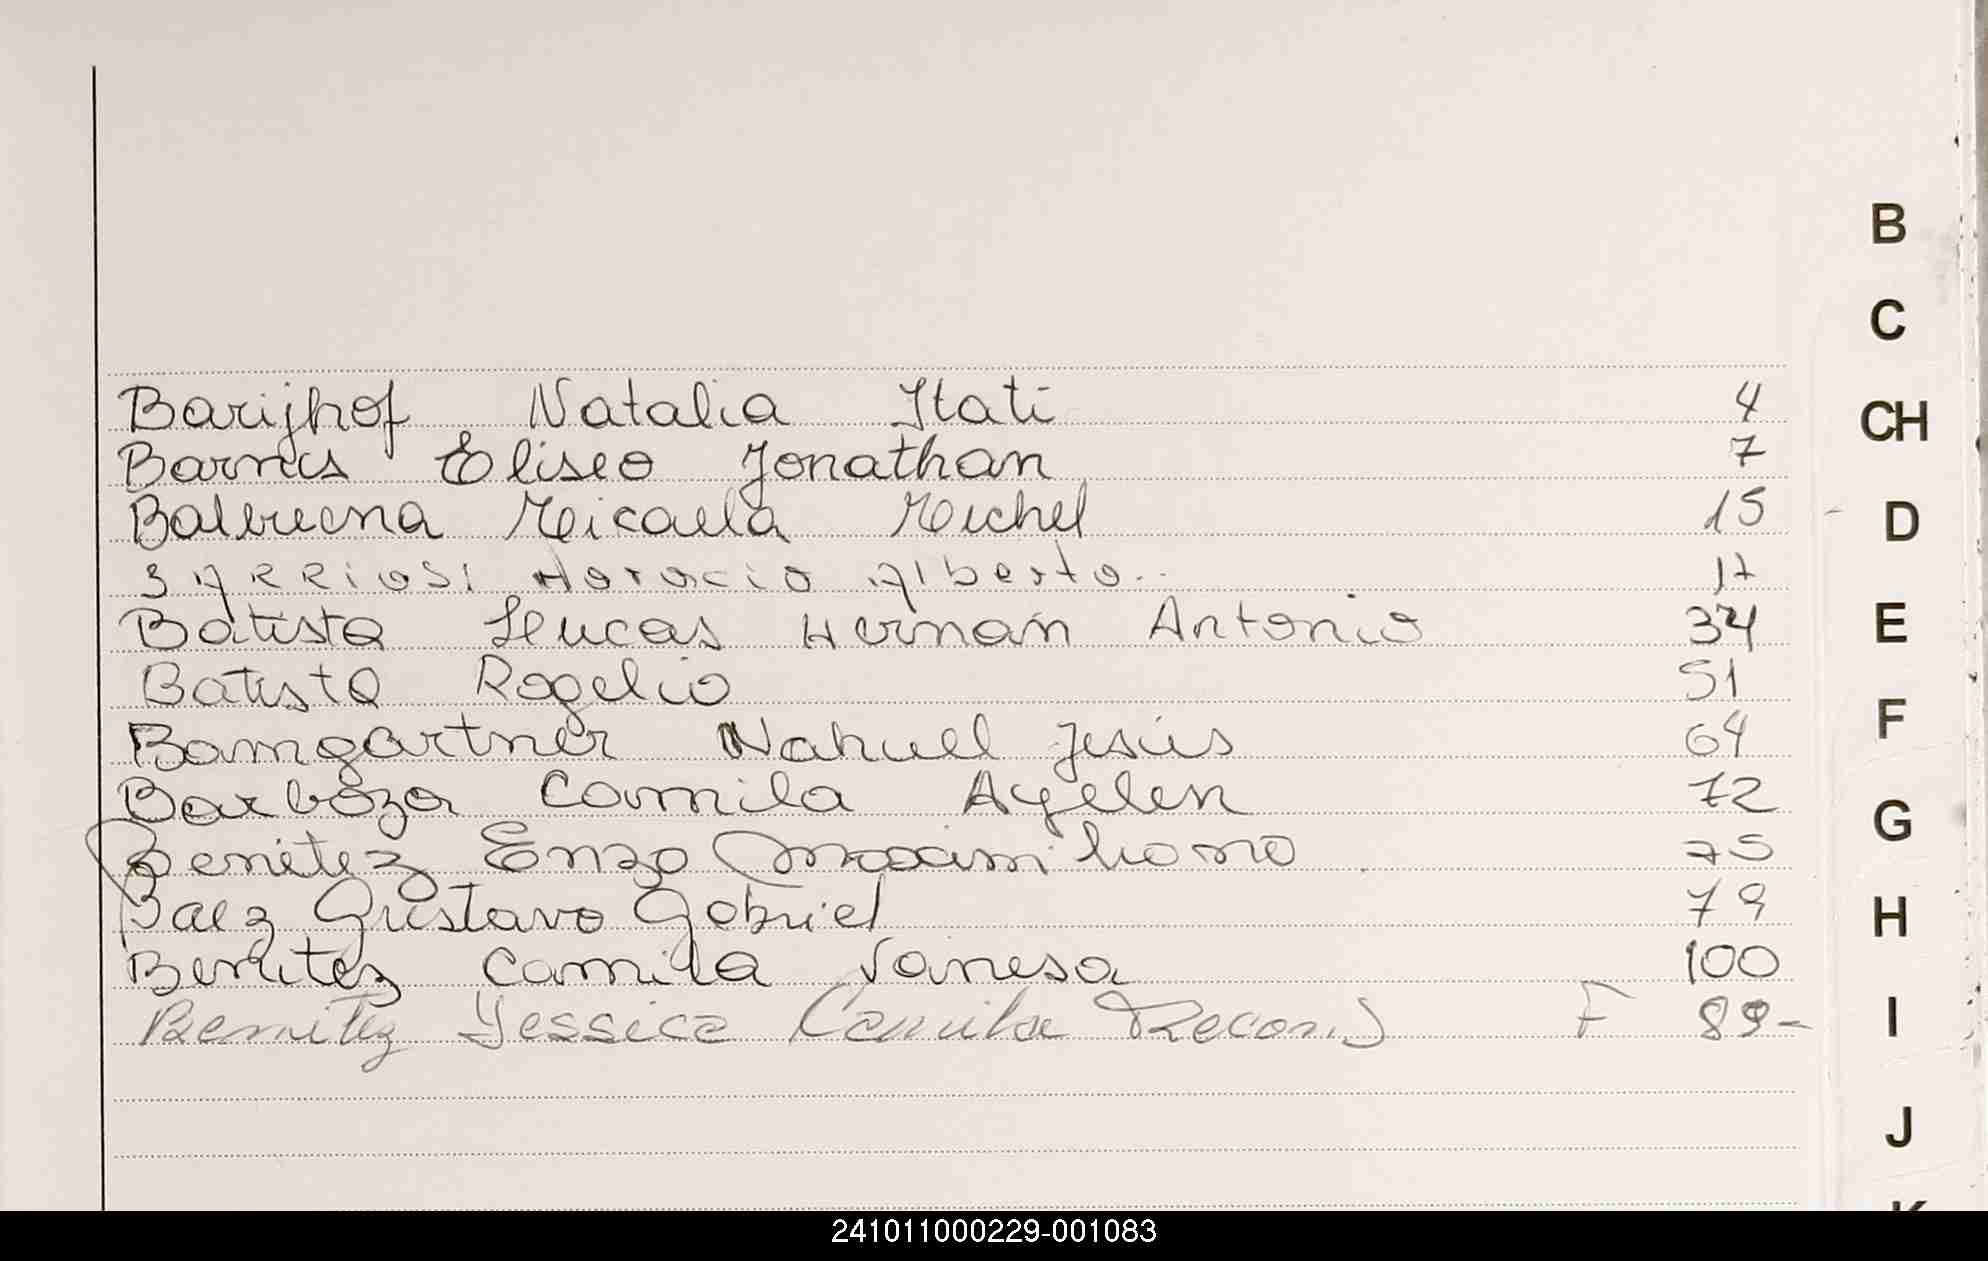 Barijhof Natalia Itati 4
Barrios Eliseo Jonathan 7
Micaela Michel 15
Horacio Alberto 17
Batista Lucas Hernán Antonio 34
Batista Rogelio 51
Bamgartner Nahuel Jesús 64
Barboza Camila Ayelen 72
Benitez Enzo Maximiliano 75
Baez Gustavo Gabriel 79
Benitez Camila Vanesa 100
Benitez Yessica Camila F 89-
B
C
CH
D
E
F
G
H
I
J
K
241011000229-001083